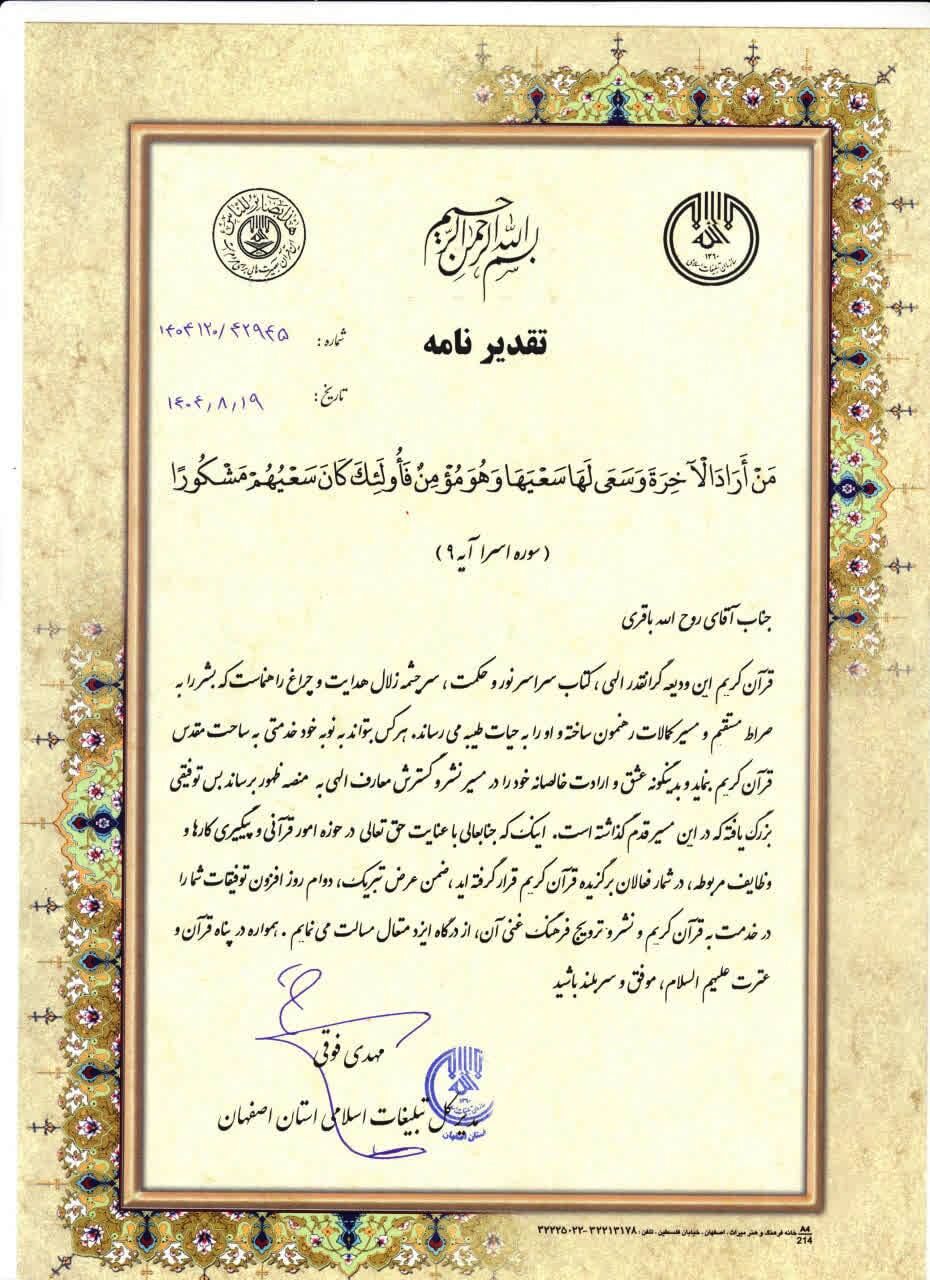 بسم الله الرحمن الرحیم
سازمان تبلیغات اسلامی
۱۳۶۰
هذا بصائر للناس
تقدیر نامه
شماره : ۱۴۰۴۱۲۰/۴۲۹۴۵
تاریخ : ۱۴۰۴/۸/۱۹
مَنْ أَرَادَ الْآخِرَةَ وَسَعَى لَهَا سَعْيَهَا وَهُوَ مُؤْمِنٌ فَأُولَئِكَ كَانَ سَعْيُهُمْ مَشْكُورًا
( سوره اسرا آیه ۹ )
جناب آقای روح الله باقری
قرآن کریم این ودیعه گرانقدر الهی ، کتاب سراسر نور و حکمت ، سرچشمه زلال هدایت و چراغ راهنماست که بشر را به
صراط مستقیم و مسیر کمالات رهنمون ساخته و او را به حیات طیبه می رساند. هر کس بتواند به نوبه خود خدمتی به ساحت مقدس
قرآن کریم بنماید و بدینگونه عشق و ارادت خالصانه خود را در مسیر نشر و گسترش معارف الهی به منصه ظهور برساند بس توفیقی
بزرگ یافته که در این مسیر قدم گذاشته است. اینک که جنابعالی با عنایت حق تعالی در حوزه امور قرآنی و پیگیری کارها و
وظایف مربوطه، در شمار فعالان برگزیده قرآن کریم قرار گرفته اید ،ضمن عرض تبریک، دوام روز افزون توفیقات شما را
در خدمت به قرآن کریم و نشر و ترویج فرهنگ غنی آن، از درگاه ایزد متعال مسالت می نمایم . همواره در پناه قرآن و
عترت علیهم السلام، موفق و سربلند باشید
مهدی فوقی
مدیر کل تبلیغات اسلامی استان اصفهان
استان اصفهان
خانه فرهنگ و هنر میراث ، اصفهان ، خیابان فلسطین ، تلفن : ۳۲۲۱۳۱۷۸ - ۳۲۲۲۵۰۲۲
A4
214